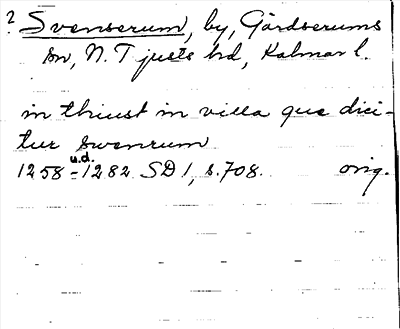 ? Svenserum, by, Gärdserums
sn, N. Tjusts hd, Kalmar l.
in thiust in villa que dici-
tur swenrum
u.d.
1258-1282 SD 1, s. 708. orig.